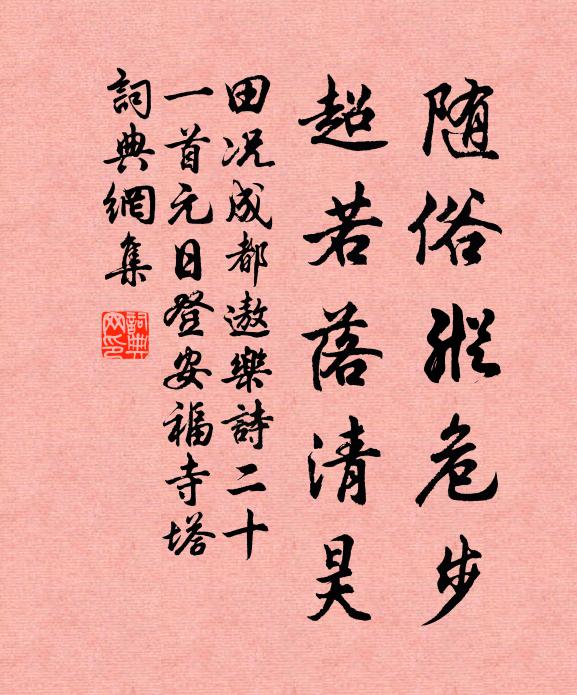 随俗縱危步
超若落清昊
田况成都遨樂詩二十
一首元日登安福寺塔
詞典網集
詞典網印